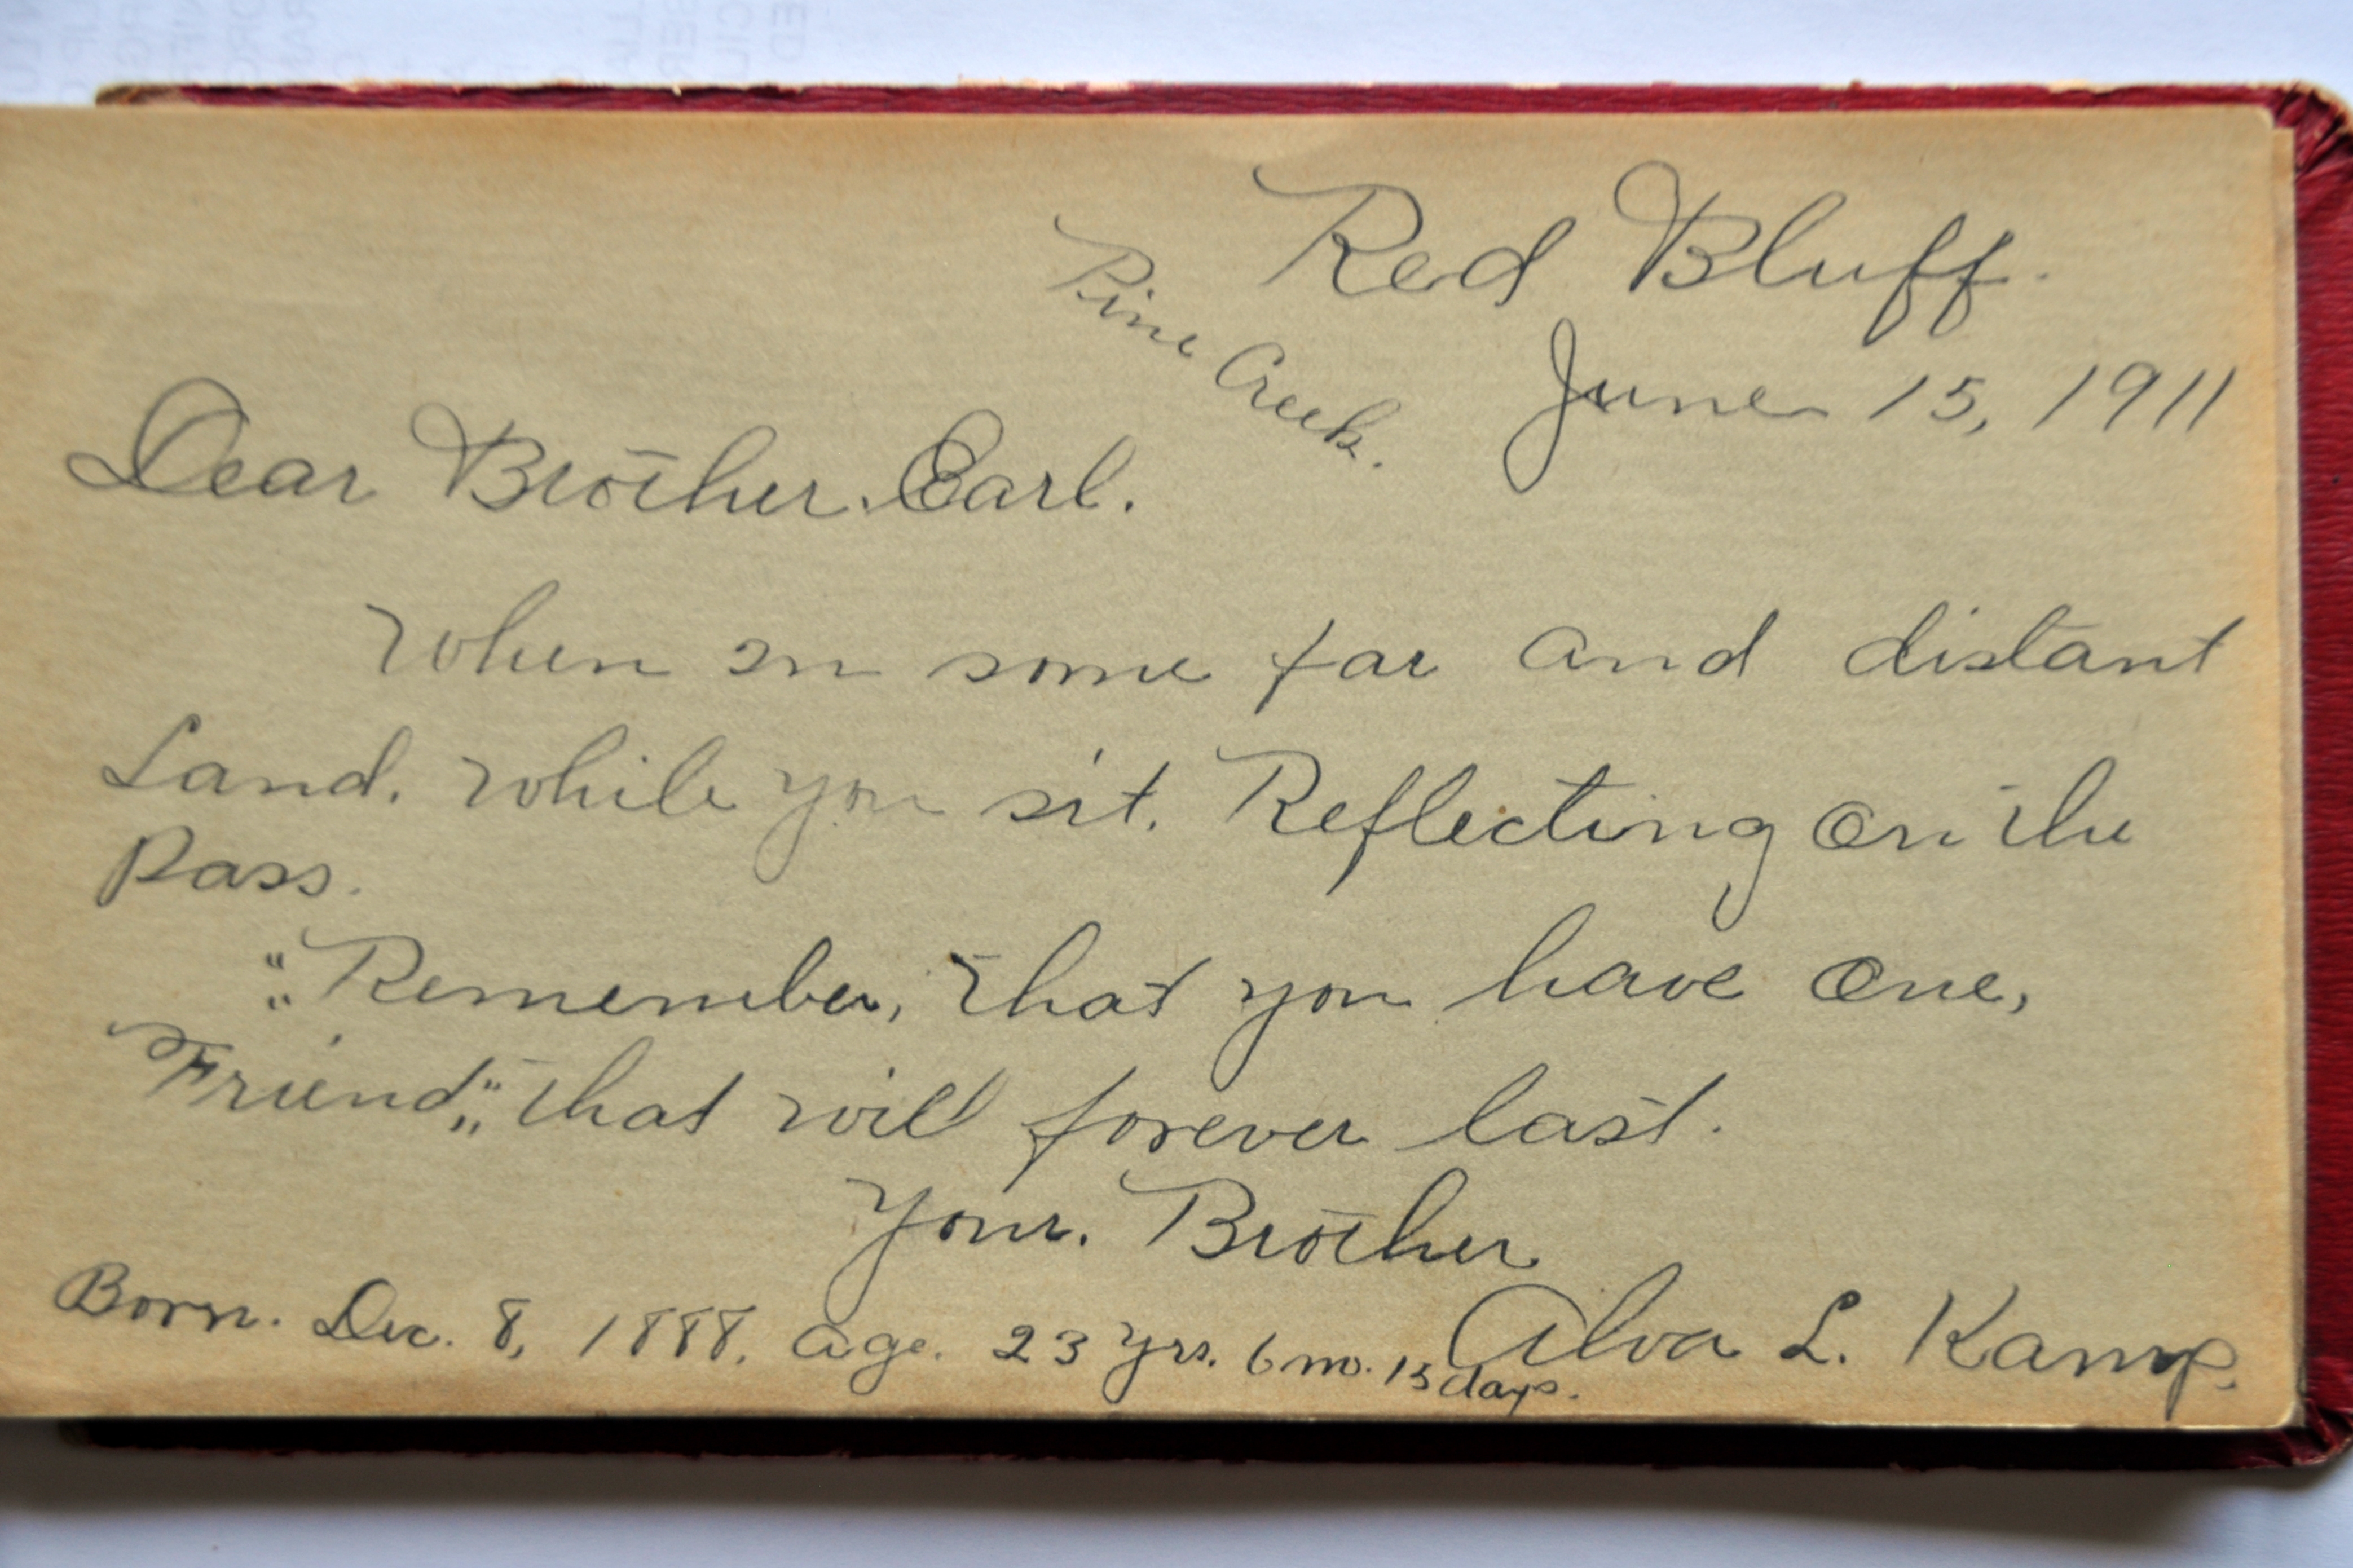 Red Bluff.
Pine Creek.
June 15, 1911
Dear Brother. Earl.
When in some far and distant
Land. While you sit. Reflecting on the
Pass.
"Remember, that you have one,
Friend," that will forever last.
Your. Brother
Alva L. Kamp.
Born. Dec. 8, 1888. Age. 23 yrs. 6 mo. 15 days.